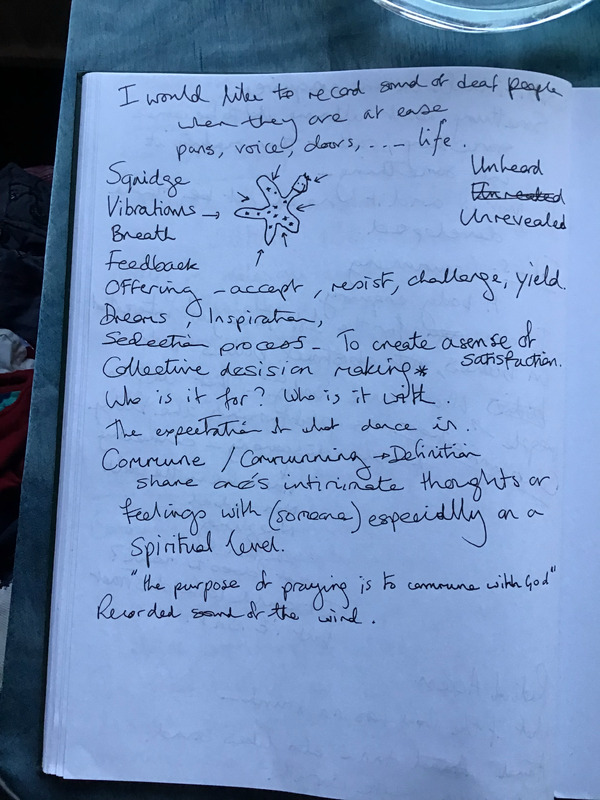 I would like to record sound of deaf people
when they are at ease
pans, voice, doors, ... life.
Squidge
Vibrations →
Breath
Feedback
Unheard
Unrevealed
Offering - accept, resist, challenge, yield.
Dreams, Inspiration,
Selection process - To create a sense of
satisfaction.
Collective desision making*
Who is it for? Who is it with.
The expectation of what dance is.
Commune / Communning → Definition
share one's intirimate thoughts or
feelings with (someone) especially on a
spiritual level.
"the purpose of praying is to commune with God"
Recorded sound of the wind.